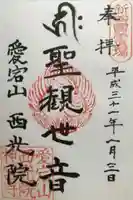 奉拝
平成三十一年八月三日
聖観世音
愛宕山 西光院